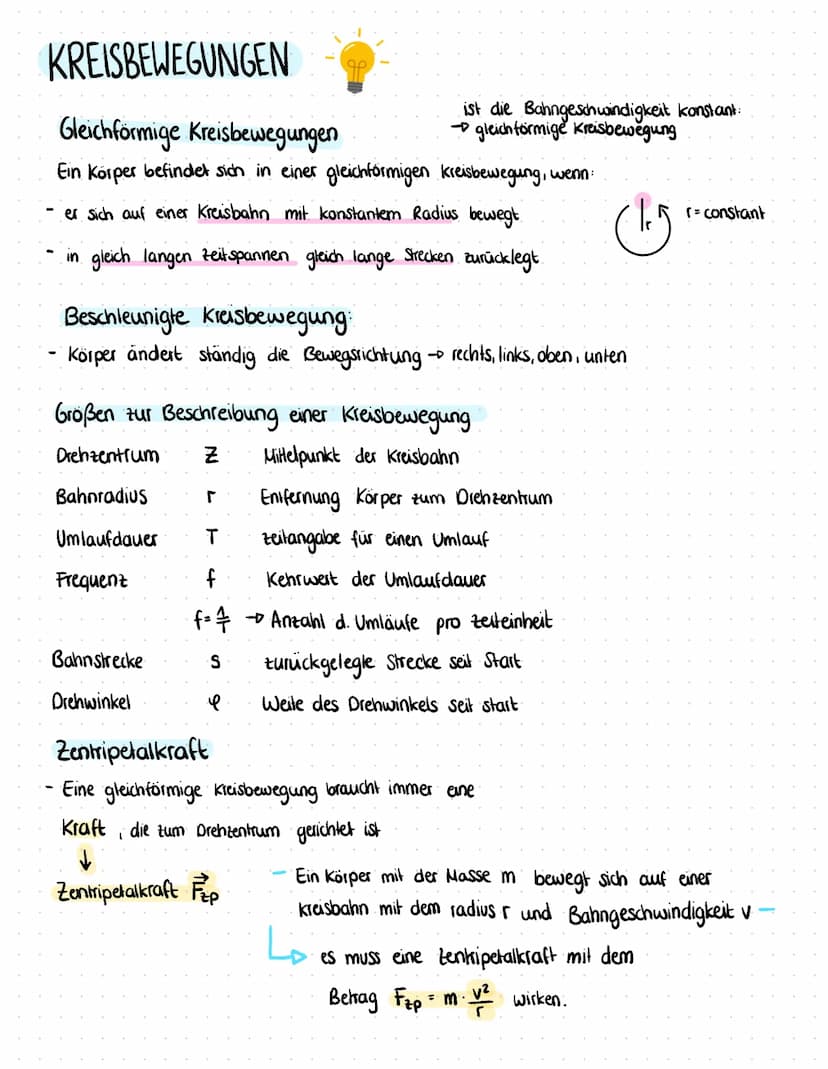 KREISBEWEGUNGEN
ist die Bahngeschwindigkeit konstant:
→ gleichförmige Kreisbewegung
Gleichförmige Kreisbewegungen
Ein Körper befindet sich in einer gleichförmigen Kreisbewegung, wenn:
- er sich auf einer Kreisbahn mit konstantem Radius bewegt
r
r = constant
- in gleich langen Zeitspannen gleich lange Strecken zurücklegt
Beschleunigte Kreisbewegung:
- Körper ändert ständig die Bewegsrichtung → rechts, links, oben, unten
Größen zur Beschreibung einer Kreisbewegung
Drehzentrum Z Mittelpunkt der Kreisbahn
Bahnradius r Entfernung Körper zum Drehzentrum
Umlaufdauer T Zeitangabe für einen Umlauf
Frequenz f Kehrwert der Umlaufdauer
f = 1/T → Anzahl d. Umläufe pro Zeiteinheit
Bahnstrecke s zurückgelegte Strecke seit Start
Drehwinkel φ Weite des Drehwinkels seit start
Zentripetalkraft
- Eine gleichförmige Kreisbewegung braucht immer eine
Kraft, die zum Drehzentrum gerichtet ist
↓
Zentripetalkraft F⃗zp
- Ein Körper mit der Masse m bewegt sich auf einer
Kreisbahn mit dem radius r und Bahngeschwindigkeit v -
es muss eine Zentripetalkraft mit dem
Betrag Fzp = m · v²/r wirken.